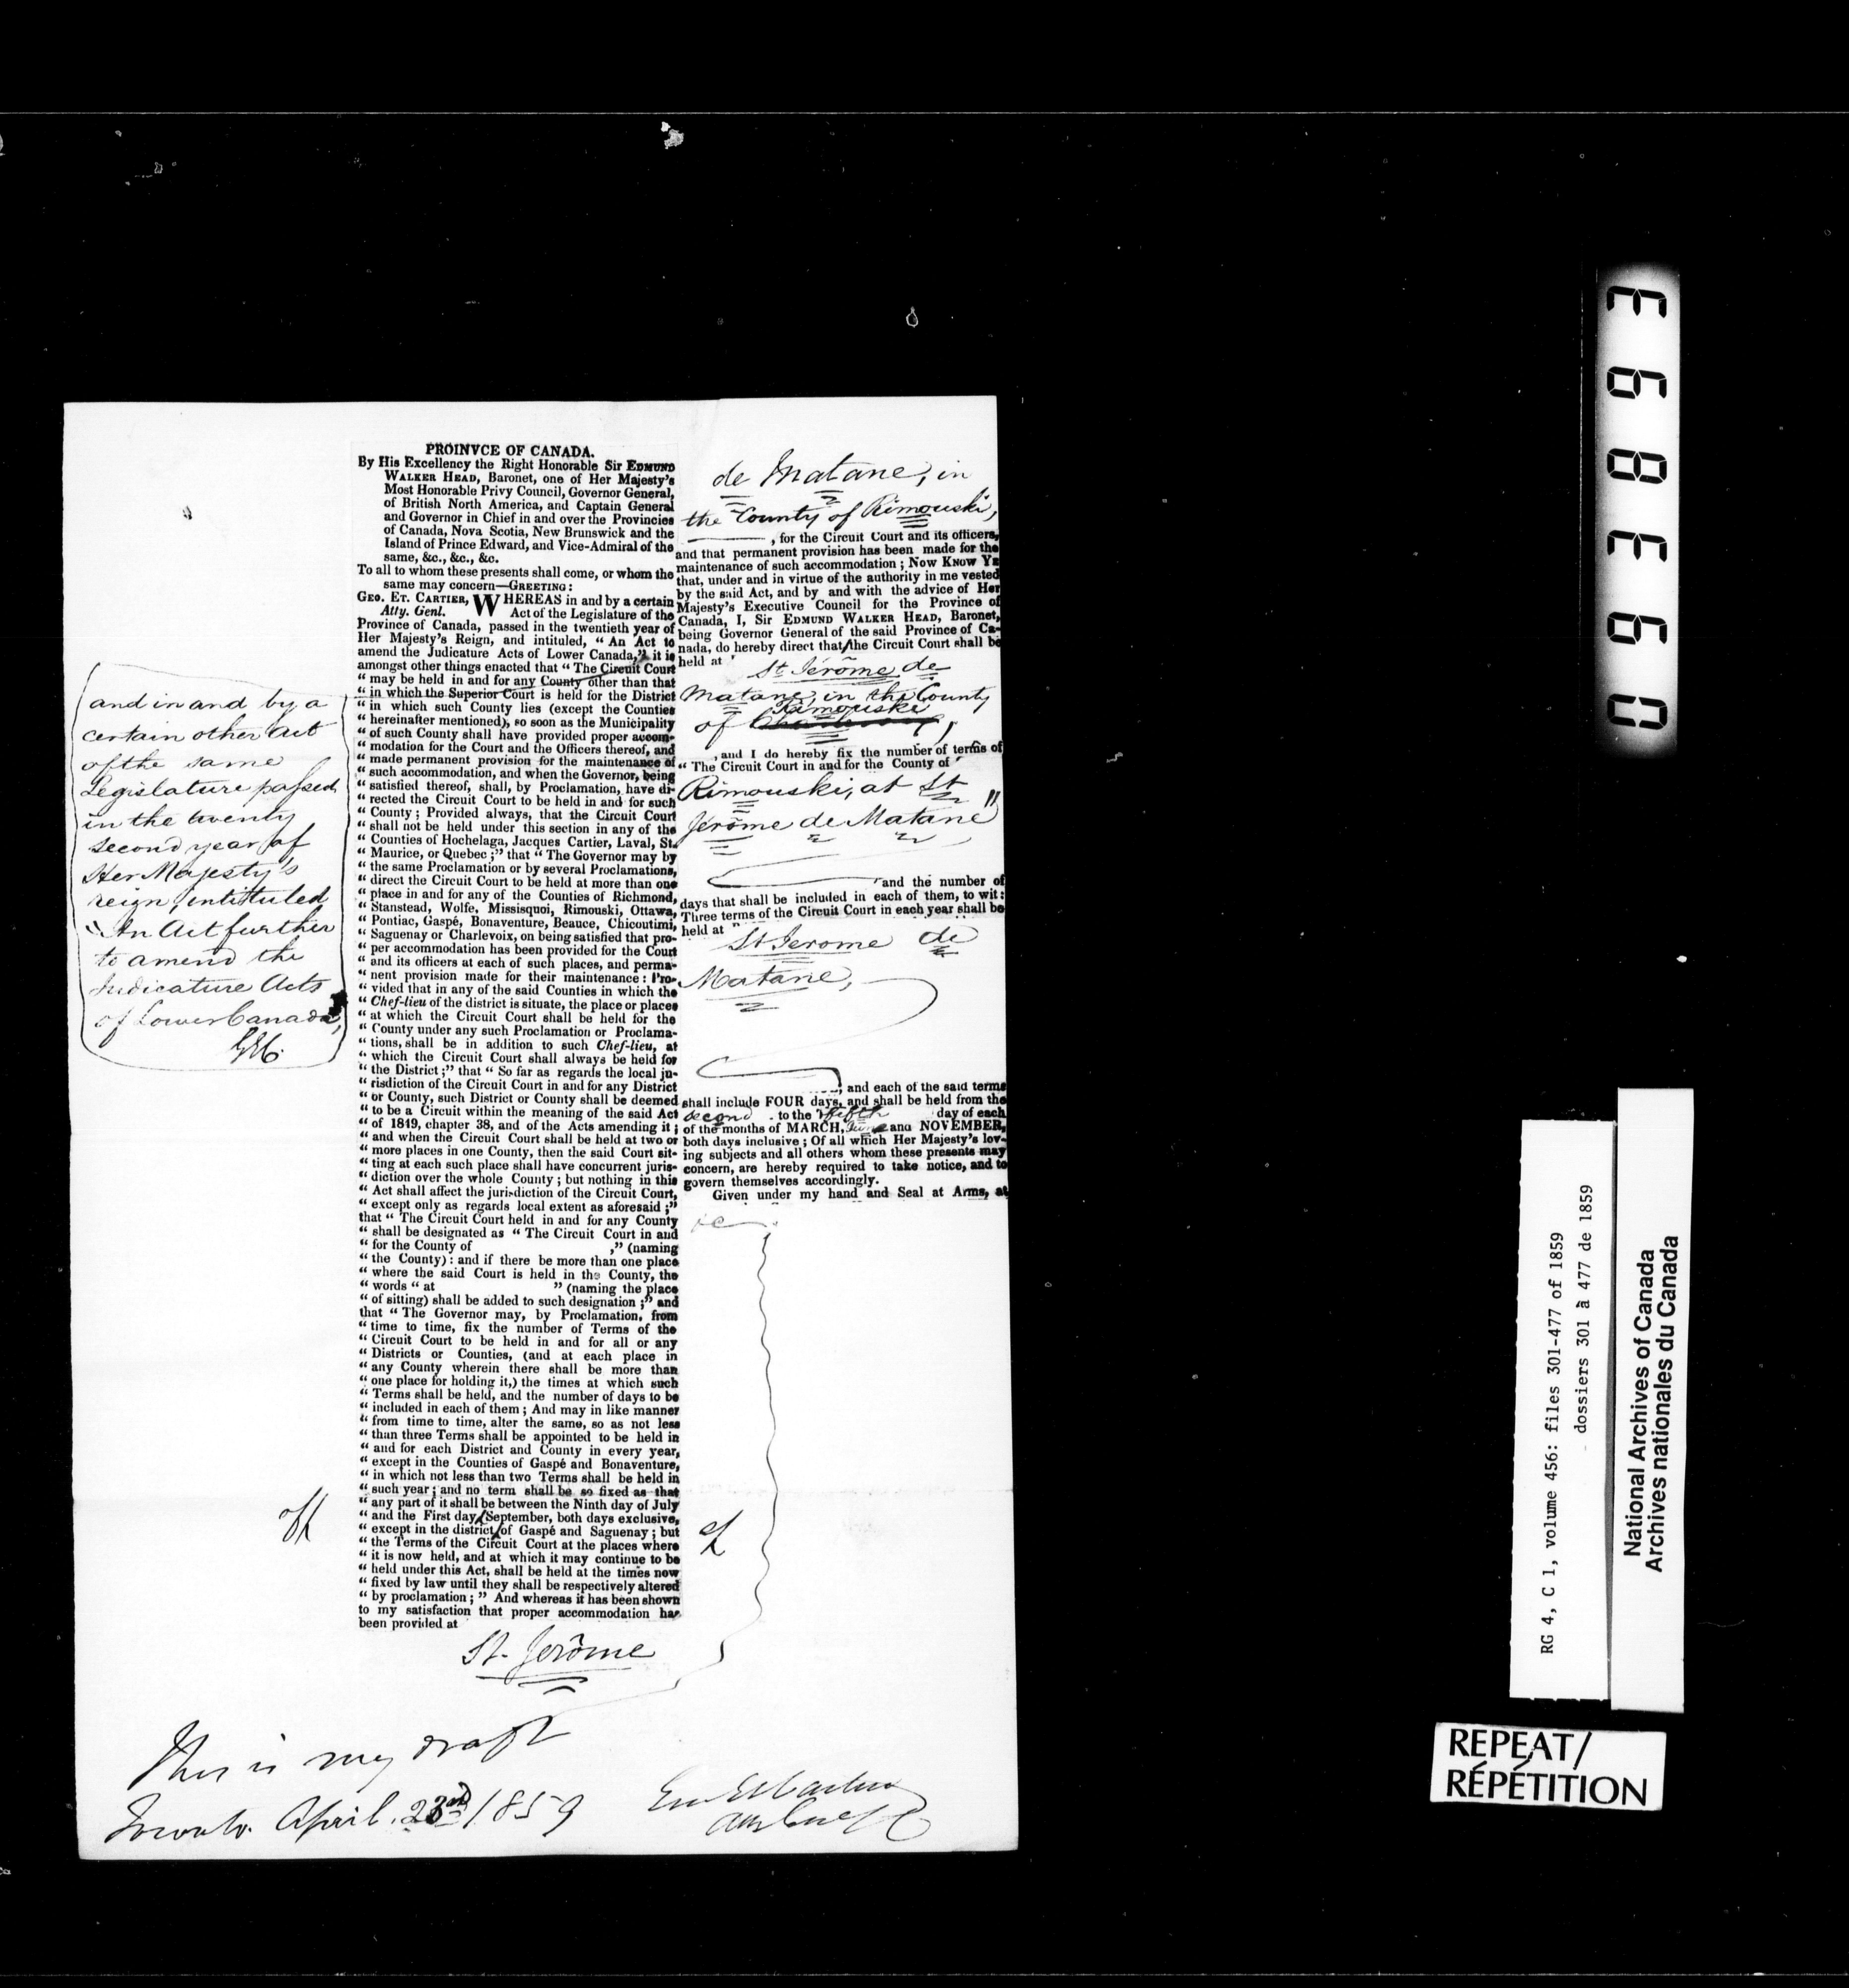 PROINVCE OF CANADA.
By His Excellency the Right Honorable Sir EDMUND
WALKER HEAD, Baronet, one of Her Majesty's
Most Honorable Privy Council, Governor General,
of British North America, and Captain General
and Governor in Chief in and over the Provinces
of Canada, Nova Scotia, New Brunswick and the
Island of Prince Edward, and Vice-Admiral of the
same, &c., &c., &c.
To all to whom these presents shall come, or whom the
same may concern—GREETING:
GEO. ET. CARTIER, Atty. Genl.
WHEREAS in and by a certain
Act of the Legislature of the
Province of Canada, passed in the twentieth year of
Her Majesty's Reign, and intituled, "An Act to
amend the Judicature Acts of Lower Canada," it is
amongst other things enacted that "The Circuit Court
" may be held in and for any County other than that
" in which the Superior Court is held for the District
" in which such County lies (except the Counties
" hereinafter mentioned), so soon as the Municipality
" of such County shall have provided proper accom-
" modation for the Court and the Officers thereof, and
" made permanent provision for the maintenance of
" such accommodation, and when the Governor, being
" satisfied thereof, shall, by Proclamation, have di-
" rected the Circuit Court to be held in and for such
" County; Provided always, that the Circuit Court
" shall not be held under this section in any of the
" Counties of Hochelaga, Jacques Cartier, Laval, St.
" Maurice, or Quebec;" that "The Governor may by
" the same Proclamation or by several Proclamations,
" direct the Circuit Court to be held at more than one
" place in and for any of the Counties of Richmond,
" Stanstead, Wolfe, Missisquoi, Rimouski, Ottawa,
" Pontiac, Gaspé, Bonaventure, Beauce, Chicoutimi,
" Saguenay or Charlevoix, on being satisfied that pro-
" per accommodation has been provided for the Court
" and its officers at each of such places, and perma-
" nent provision made for their maintenance: Pro-
" vided that in any of the said Counties in which the
" Chef-lieu of the district is situate, the place or places
" at which the Circuit Court shall be held for the
" County under any such Proclamation or Proclama-
" tions, shall be in addition to such Chef-lieu, at
" which the Circuit Court shall always be held for
" the District;" that "So far as regards the local ju-
" risdiction of the Circuit Court in and for any District
" or County, such District or County shall be deemed
" to be a Circuit within the meaning of the said Act
" of 1819, chapter 38, and of the Acts amending it;
" and when the Circuit Court shall be held at two or
" more places in one County, then the said Court sit-
" ting at each such place shall have concurrent juris-
" diction over the whole County; but nothing in this
" Act shall affect the jurisdiction of the Circuit Court,
" except only as regards local extent as aforesaid;"
that "The Circuit Court held in and for any County
" shall be designated as "The Circuit Court in and
" for the County of ," (naming
" the County): and if there be more than one place
" where the said Court is held in the County, the
" words "at " (naming the place
" of sitting) shall be added to such designation;" and
that "The Governor may, by Proclamation, from
" time to time, fix the number of Terms of the
" Circuit Court to be held in and for all or any
" Districts or Counties, (and at each place in
" any County wherein there shall be more than
" one place for holding it,) the times at which such
" Terms shall be held, and the number of days to be
" included in each of them; And may in like manner
" from time to time, alter the same, so as not less
" than three Terms shall be appointed to be held in
" and for each District and County in every year,
" except in the Counties of Gaspé and Bonaventure,
" in which not less than two Terms shall be held in
" such year; and no term shall be so fixed as that
" any part of it shall be between the Ninth day of July
" and the First day September, both days exclusive,
" except in the district of Gaspé and Saguenay; but
" the Terms of the Circuit Court at the places where
" it is now held, and at which it may continue to be
" held under this Act, shall be held at the times now
" fixed by law until they shall be respectively altered
" by proclamation;" And whereas it has been shown
to my satisfaction that proper accommodation has
been provided at
St. Jerôme
and in and by a
certain other Act
of the same
Legislature passed
in the twenty
second year of
Her Majesty's
reign intituled
"An Act further
to amend the
Judicature Acts
of Lower Canada,
GEC.
de Matane, in
the County of Rimouski,
, for the Circuit Court and its officers,
and that permanent provision has been made for the
maintenance of such accommodation; Now KNOW YE
that, under and in virtue of the authority in me vested
by the said Act, and by and with the advice of Her
Majesty's Executive Council for the Province of
Canada, I, Sir EDMUND WALKER HEAD, Baronet,
being Governor General of the said Province of Ca-
nada, do hereby direct that the Circuit Court shall be
held at
St Jérôme de
Matane, in the County
of Rimouski,
, and I do hereby fix the number of terms of
" The Circuit Court in and for the County of
Rimouski, at St
Jérôme de Matane"
and the number of
days that shall be included in each of them, to wit:
Three terms of the Circuit Court in each year shall be
held at
St Jerome de
Matane,
, and each of the said terms
shall include FOUR days, and shall be held from the
second to the fifth day of each
of the months of MARCH, June and NOVEMBER,
both days inclusive; Of all which Her Majesty's lov-
ing subjects and all others whom these presents may
concern, are hereby required to take notice, and to
govern themselves accordingly.
Given under my hand and Seal at Arms, at
&c
This is my draft
Toronto April 23rd 1859
Geo Et Cartier
Atty Genl LC
03983963
RG 4, C 1, volume 456: files 301-477 of 1859
dossiers 301 à 477 de 1859
National Archives of Canada
Archives nationales du Canada
REPEAT/
RÉPÉTITION